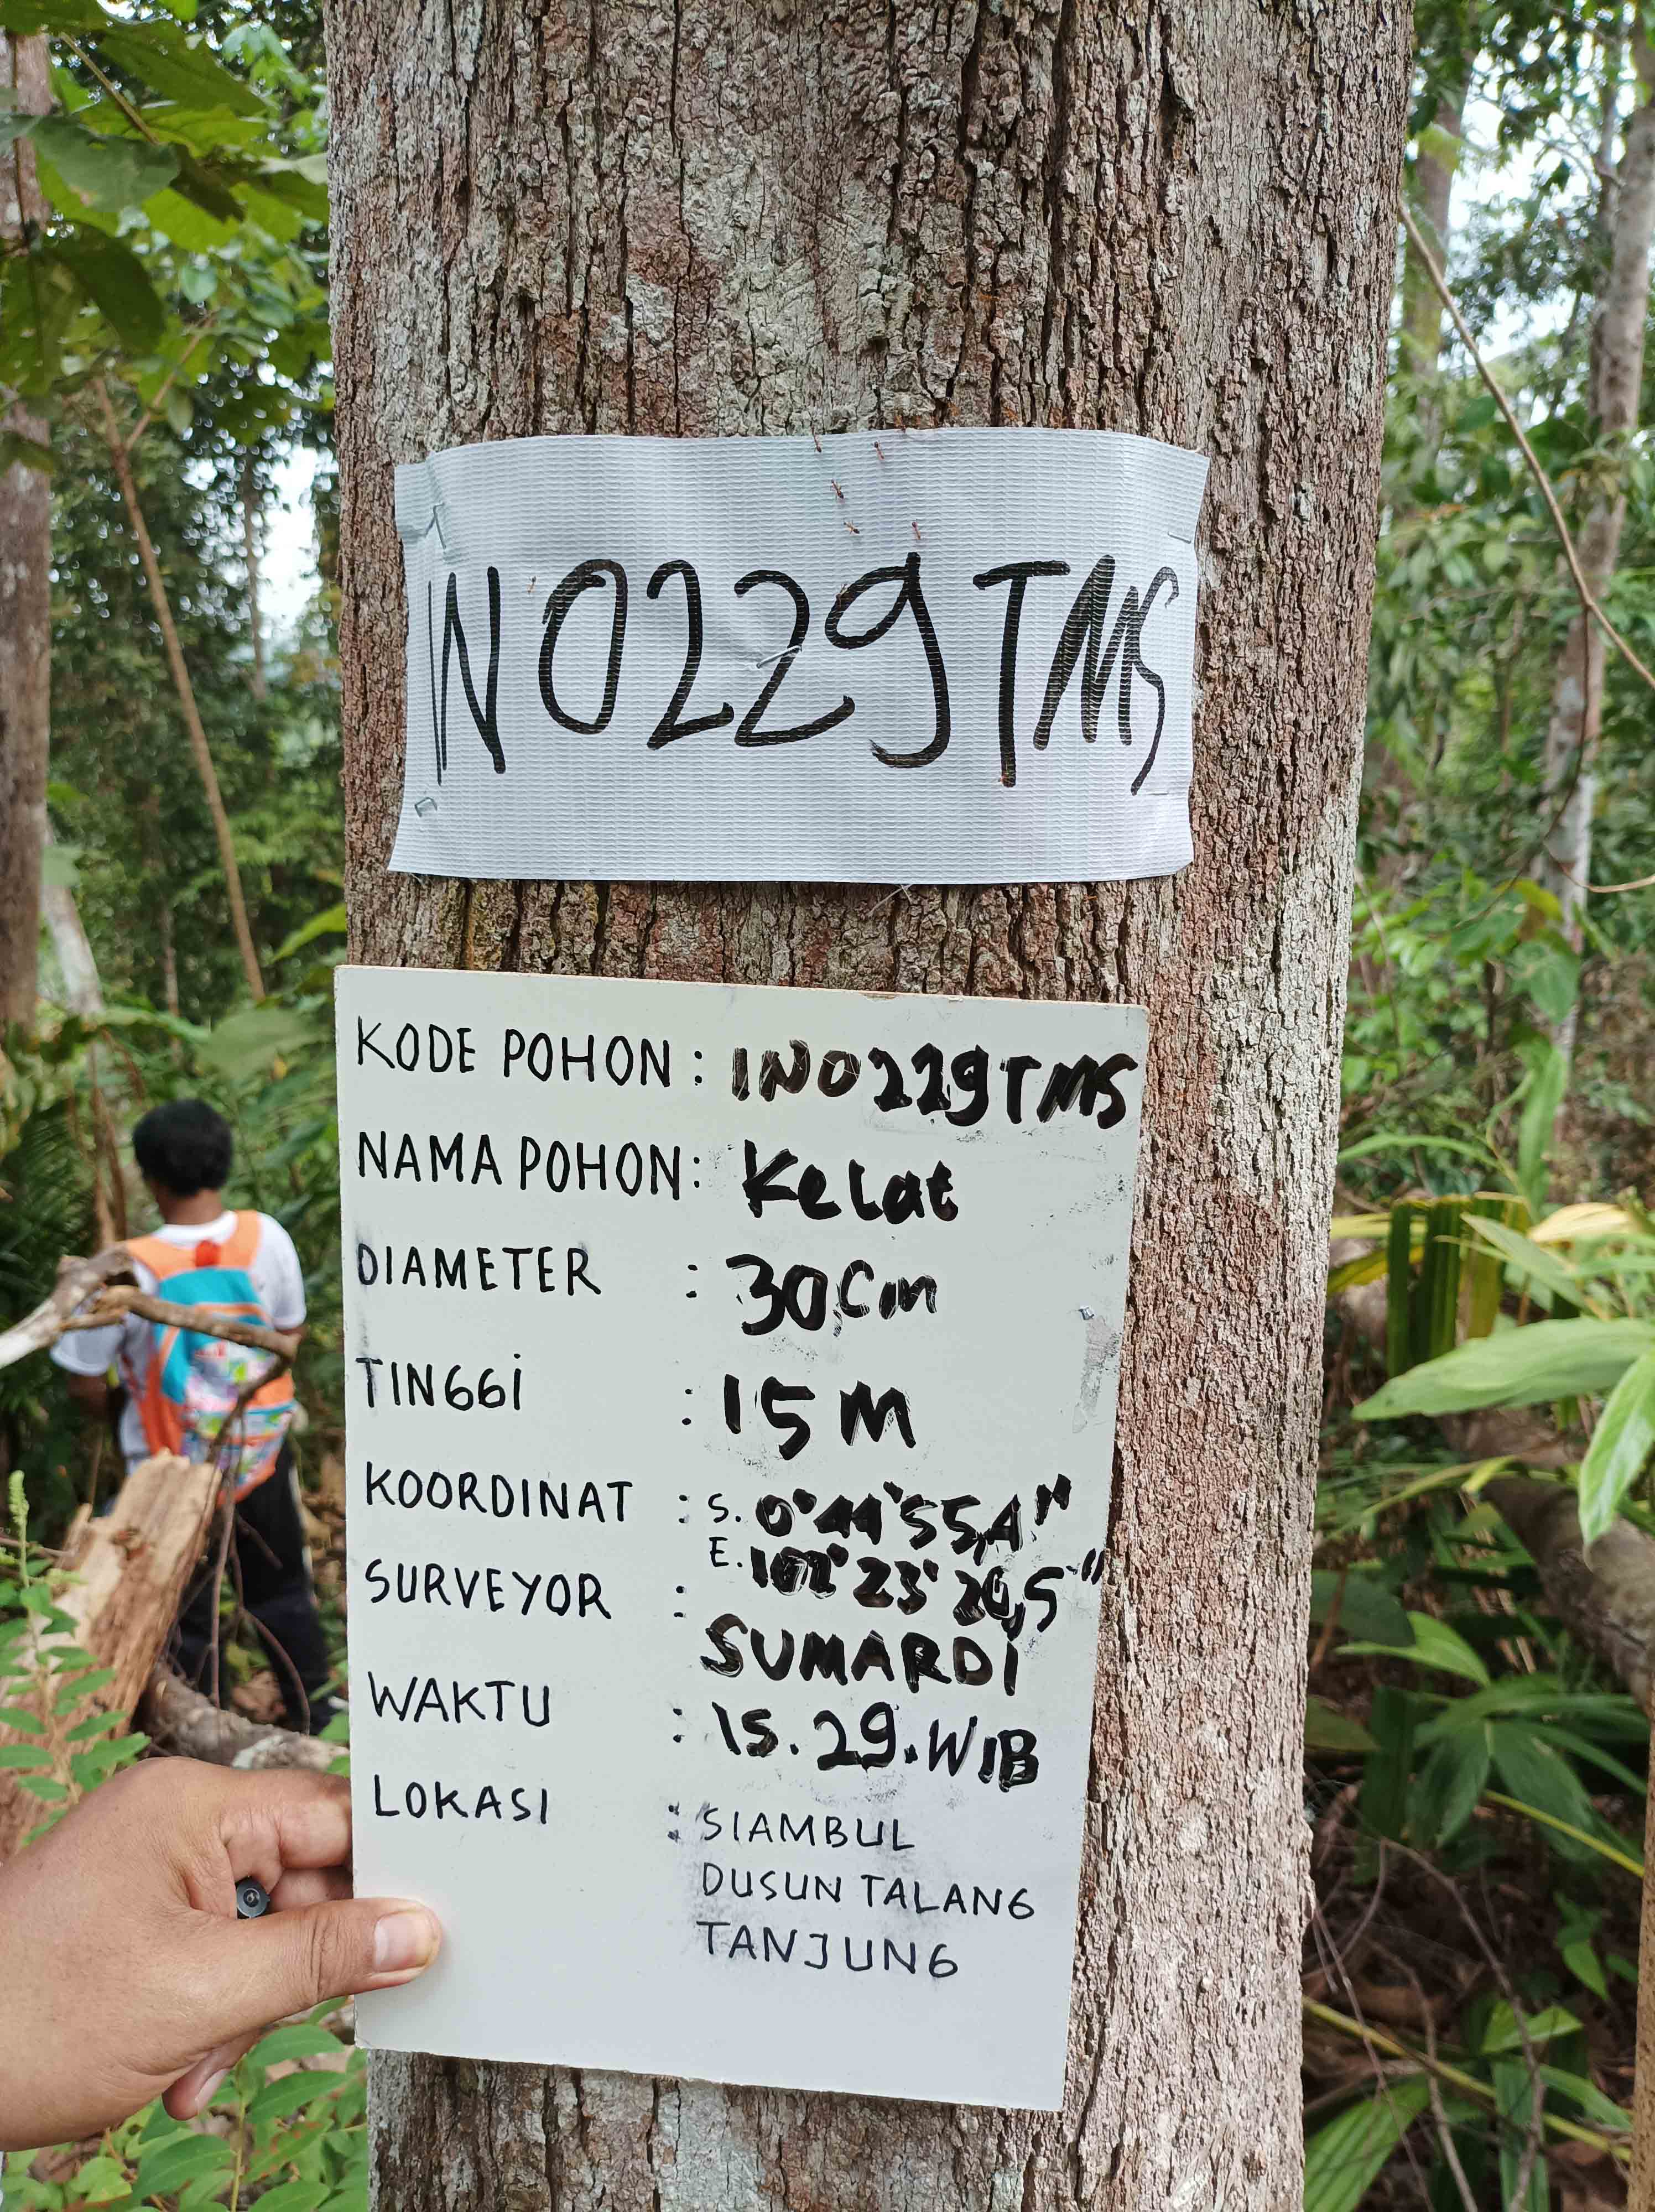 IN0229TMS
KODE POHON : IN0229TMS
NAMA POHON : Kelat
DIAMETER : 30 Cm
TINGGi : 15 M
KOORDINAT : S. 0°44'55,4"
E. 102°23'20,5"
SURVEYOR : SUMARDI
WAKTU : 15.29.WIB
LOKASI : SIAMBUL
DUSUN TALANG
TANJUNG